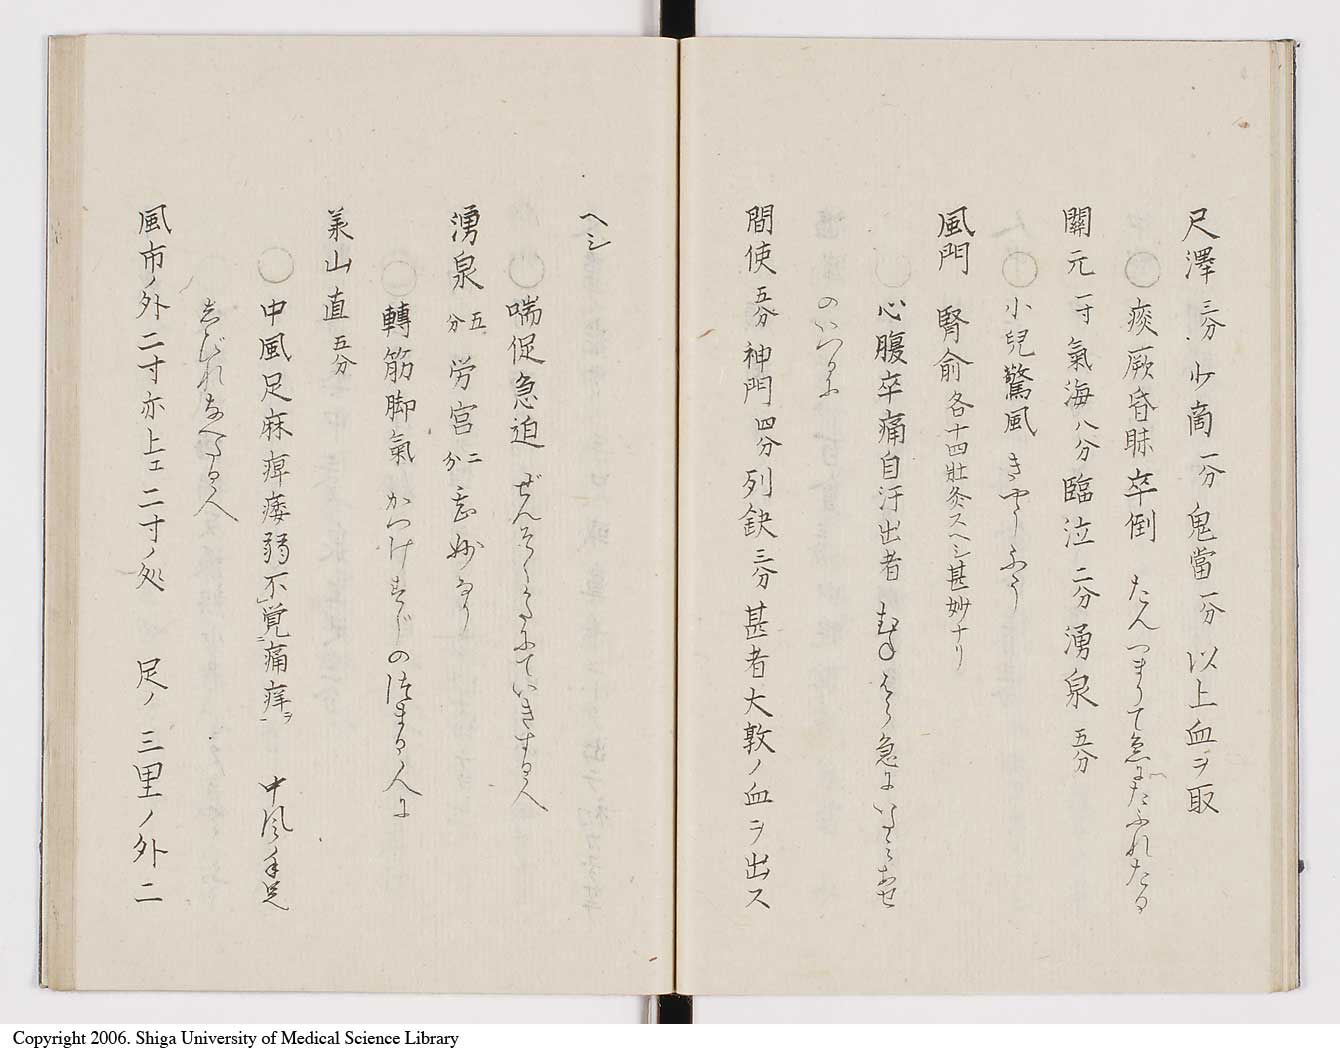 尺澤 三分 少商 一分 鬼當 一分 以上血ヲ取
○痰厥昏眛卒倒 たんつまりて急にたふれたる
關元 一寸 氣海 八分 臨泣 二分 湧泉 五分
○小兒驚風 きやうふう
風門 腎俞 各十四壯灸スヘシ甚妙ナリ
○心腹卒痛自汗出者 むねはら急にいたみあせ
のいつるに
間使 五分 神門 四分 列缺 三分 甚者大敦ノ血ヲ出ス
ヘシ
○喘促急迫 ぜんそくかたにていきする人
湧泉 五分 労宮 二分 甚妙なり
○轉筋脚氣 かつけすぢのつまる人に
義山 直 五分
○中風足麻痺痿弱不覚痛痒ヲ 中風手足
しびれなへたる人
風市ノ外二寸亦上エ二寸ノ処 足ノ三里ノ外二
Copyright 2006. Shiga University of Medical Science Library